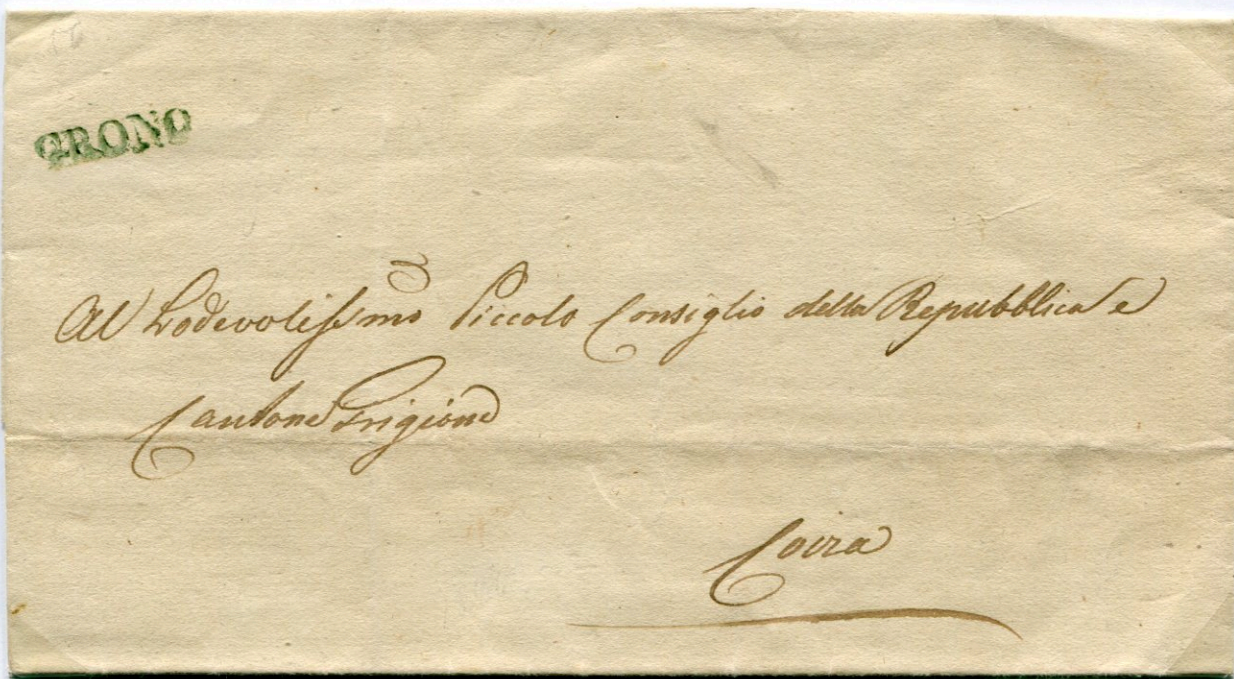 GRONO
Al Lodevolissimo Piccolo Consiglio della Repubblica e
Cantone Grigione
Coira